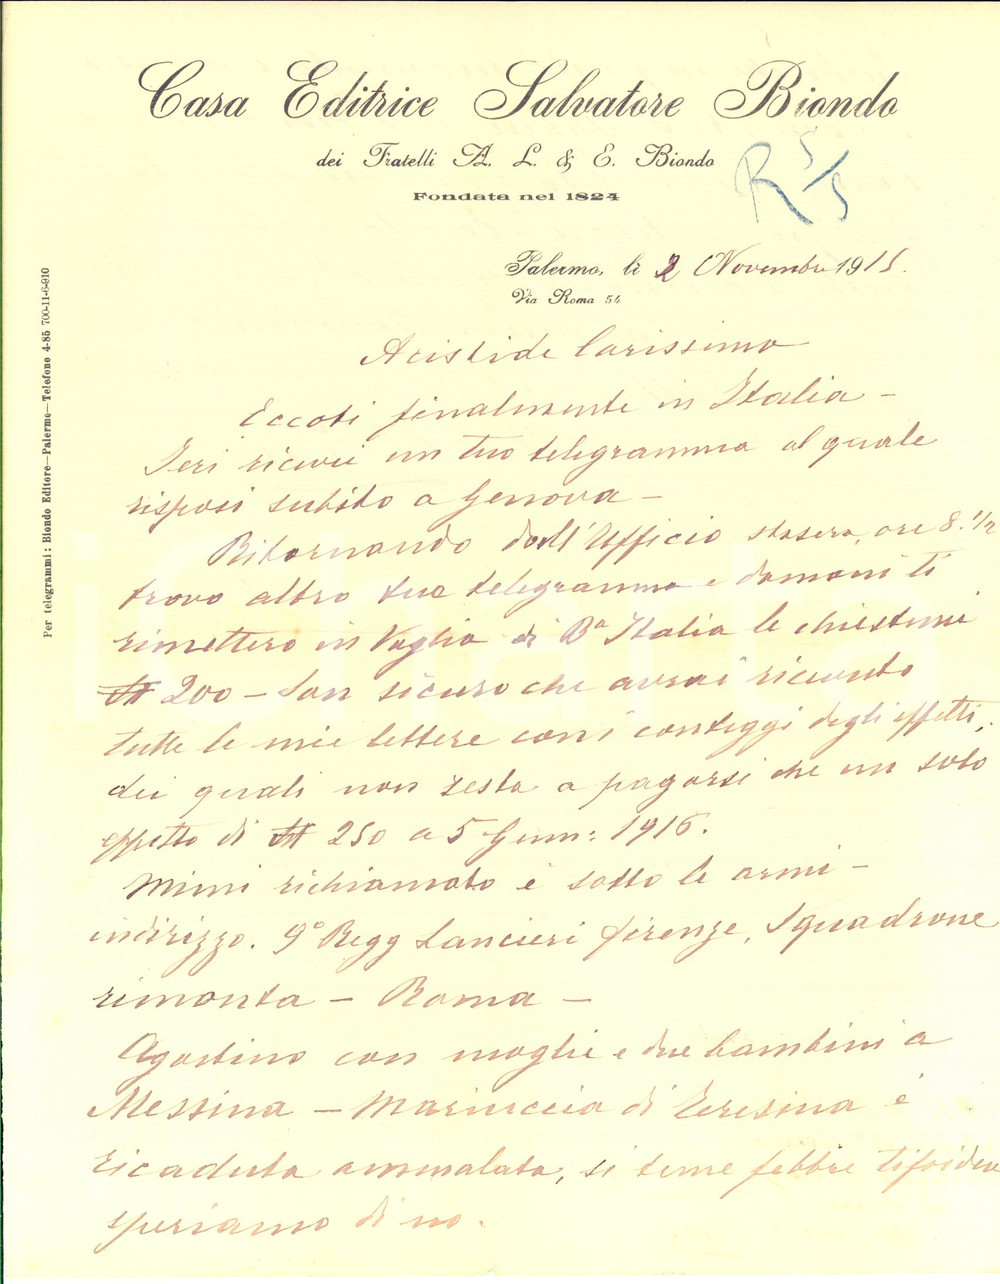 Casa Editrice Salvatore Biondo
dei Fratelli A. L. & E. Biondo
Fondata nel 1824
R 5/5
Palermo, lì 2 Novembre 1915.
Via Roma 54
Per telegrammi: Biondo Editore—Palermo—Telefono 4-85 700-11-6-910
Aristide Carissimo
Eccoti finalmente in Italia –
Ieri ricevei un tuo telegramma al quale
risposi subito a Genova –
Ritornando dall'Ufficio stasera, ore 8. 1/2
trovo altro tuo telegramma e domani ti
rimetterò in Vaglia di Ba Italia le chiestemi
₶ 200 – Son sicuro che avrai ricevuto
tutte le mie lettere con i conteggi degli effetti,
dei quali non resta a pagarsi che un solo
effetto di ₶ 250 a 5 Genn: 1916.
Mimì richiamato è sotto le armi –
indirizzo. 9° Regg Lancieri firenze, Squadrone
rimonta – Roma –
Agostino con moglie e due bambini a
Messina – Mariuccia di Teresina è
ricaduta ammalata, si teme febbre tifoidea
speriamo di no.
iCharta